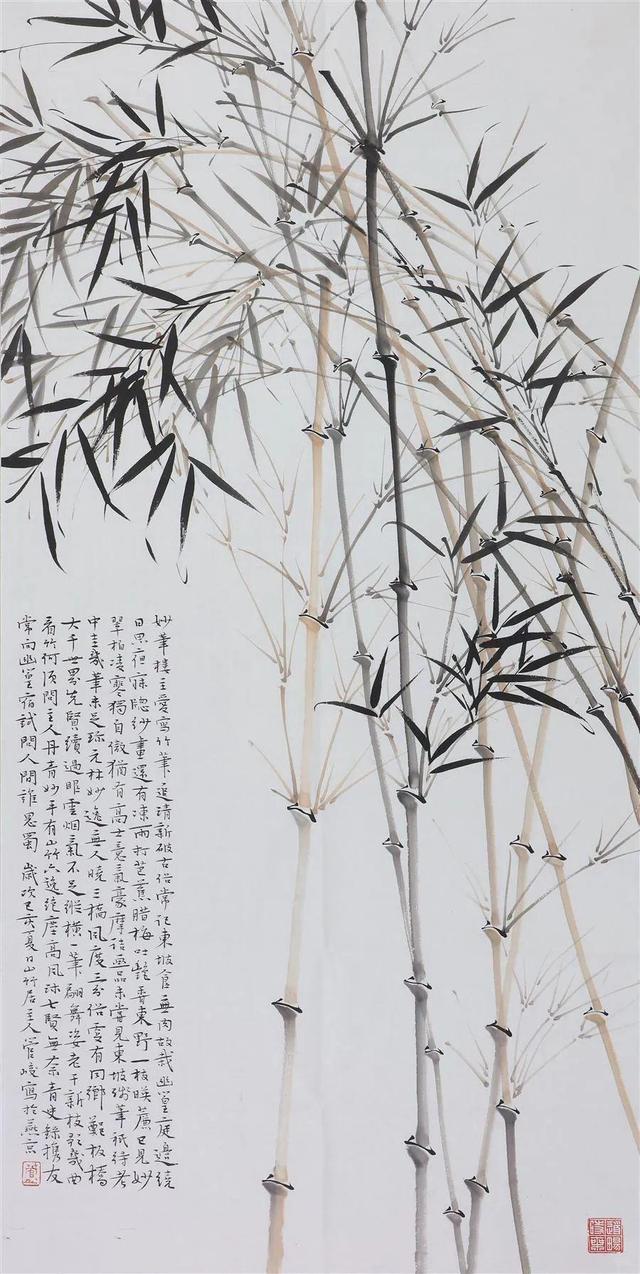 妙筆樓主愛寫竹筆追清新破古俗常記東坡食無肉故栽幽篁庭邊繞
日思夜寐牕紗畫還有凍雨打芭蕉腊梅吐艷香東野一枝暎簾已見妙
翠柏凌寒獨自傲猶有高士意氣豪摩詰画品未嘗見東坡筆祇待考
中圭幾筆未足珍元林妙逸無人曉三橋風度三分俗有同鄉鄭板橋
大千世界先賢續過眼雲烟氣不足縱橫一筆翩舞姿老干新枝歌幾曲
看竹何須問主人丹青妙手有山竹六逸絕塵高風跡七賢無奈青史錄携友
常向幽篁宿試問人間誰思蜀 歲次己亥夏日山竹居主人管峻寫於燕京